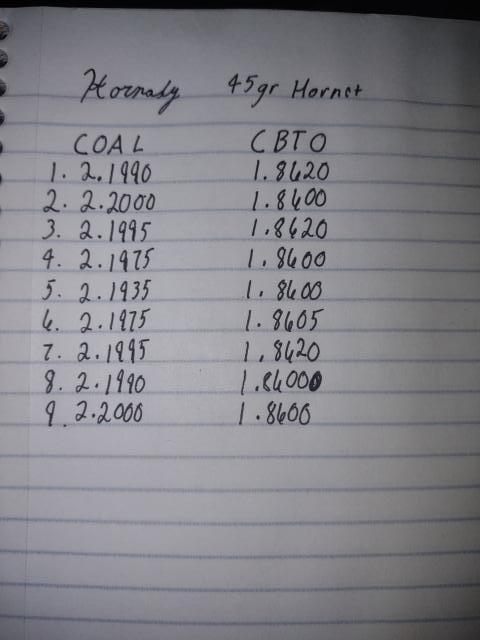 Hornady 45gr Hornet
COAL CBTO
1. 2.1990 1.8620
2. 2.2000 1.8600
3. 2.1995 1.8620
4. 2.1975 1.8600
5. 2.1935 1.8600
6. 2.1975 1.8605
7. 2.1995 1.8620
8. 2.1990 1.86000
9. 2.2000 1.8600